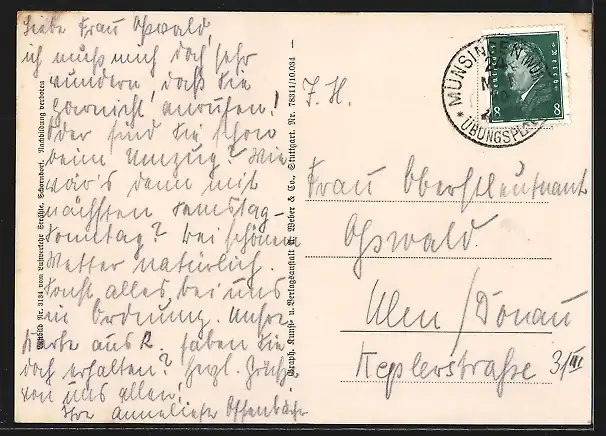 Liebe Frau Oßwald,
ich muß mich doch sehr
wundern, daß Sie
garnicht anrufen!
Oder sind Sie schon
beim Umzug? Wie
wär's denn mit
nächsten Samstag-
Sonntag? Bei schönem
Wetter natürlich.
Sonst alles bei uns
in Ordnung. Unsre
Karte aus R. haben Sie
doch erhalten? Herzl. Grüße
von uns allen!
Ihre Anneliese Offenbächer
Luftbild Nr. 3134 vom Luftverkehr Strähle, Schorndorf. Nachbildung verboten
Graph. Kunst- u. Verlagsanstalt Weber & Co., Stuttgart. Nr. 78311/10.034
F. H.
Frau Oberstleutnant
Oßwald
Ulm/Donau
Keplerstraße 31/III
* MÜNSINGEN (WÜ
ÜBUNGSPLA
Deutsches Reich
8 8